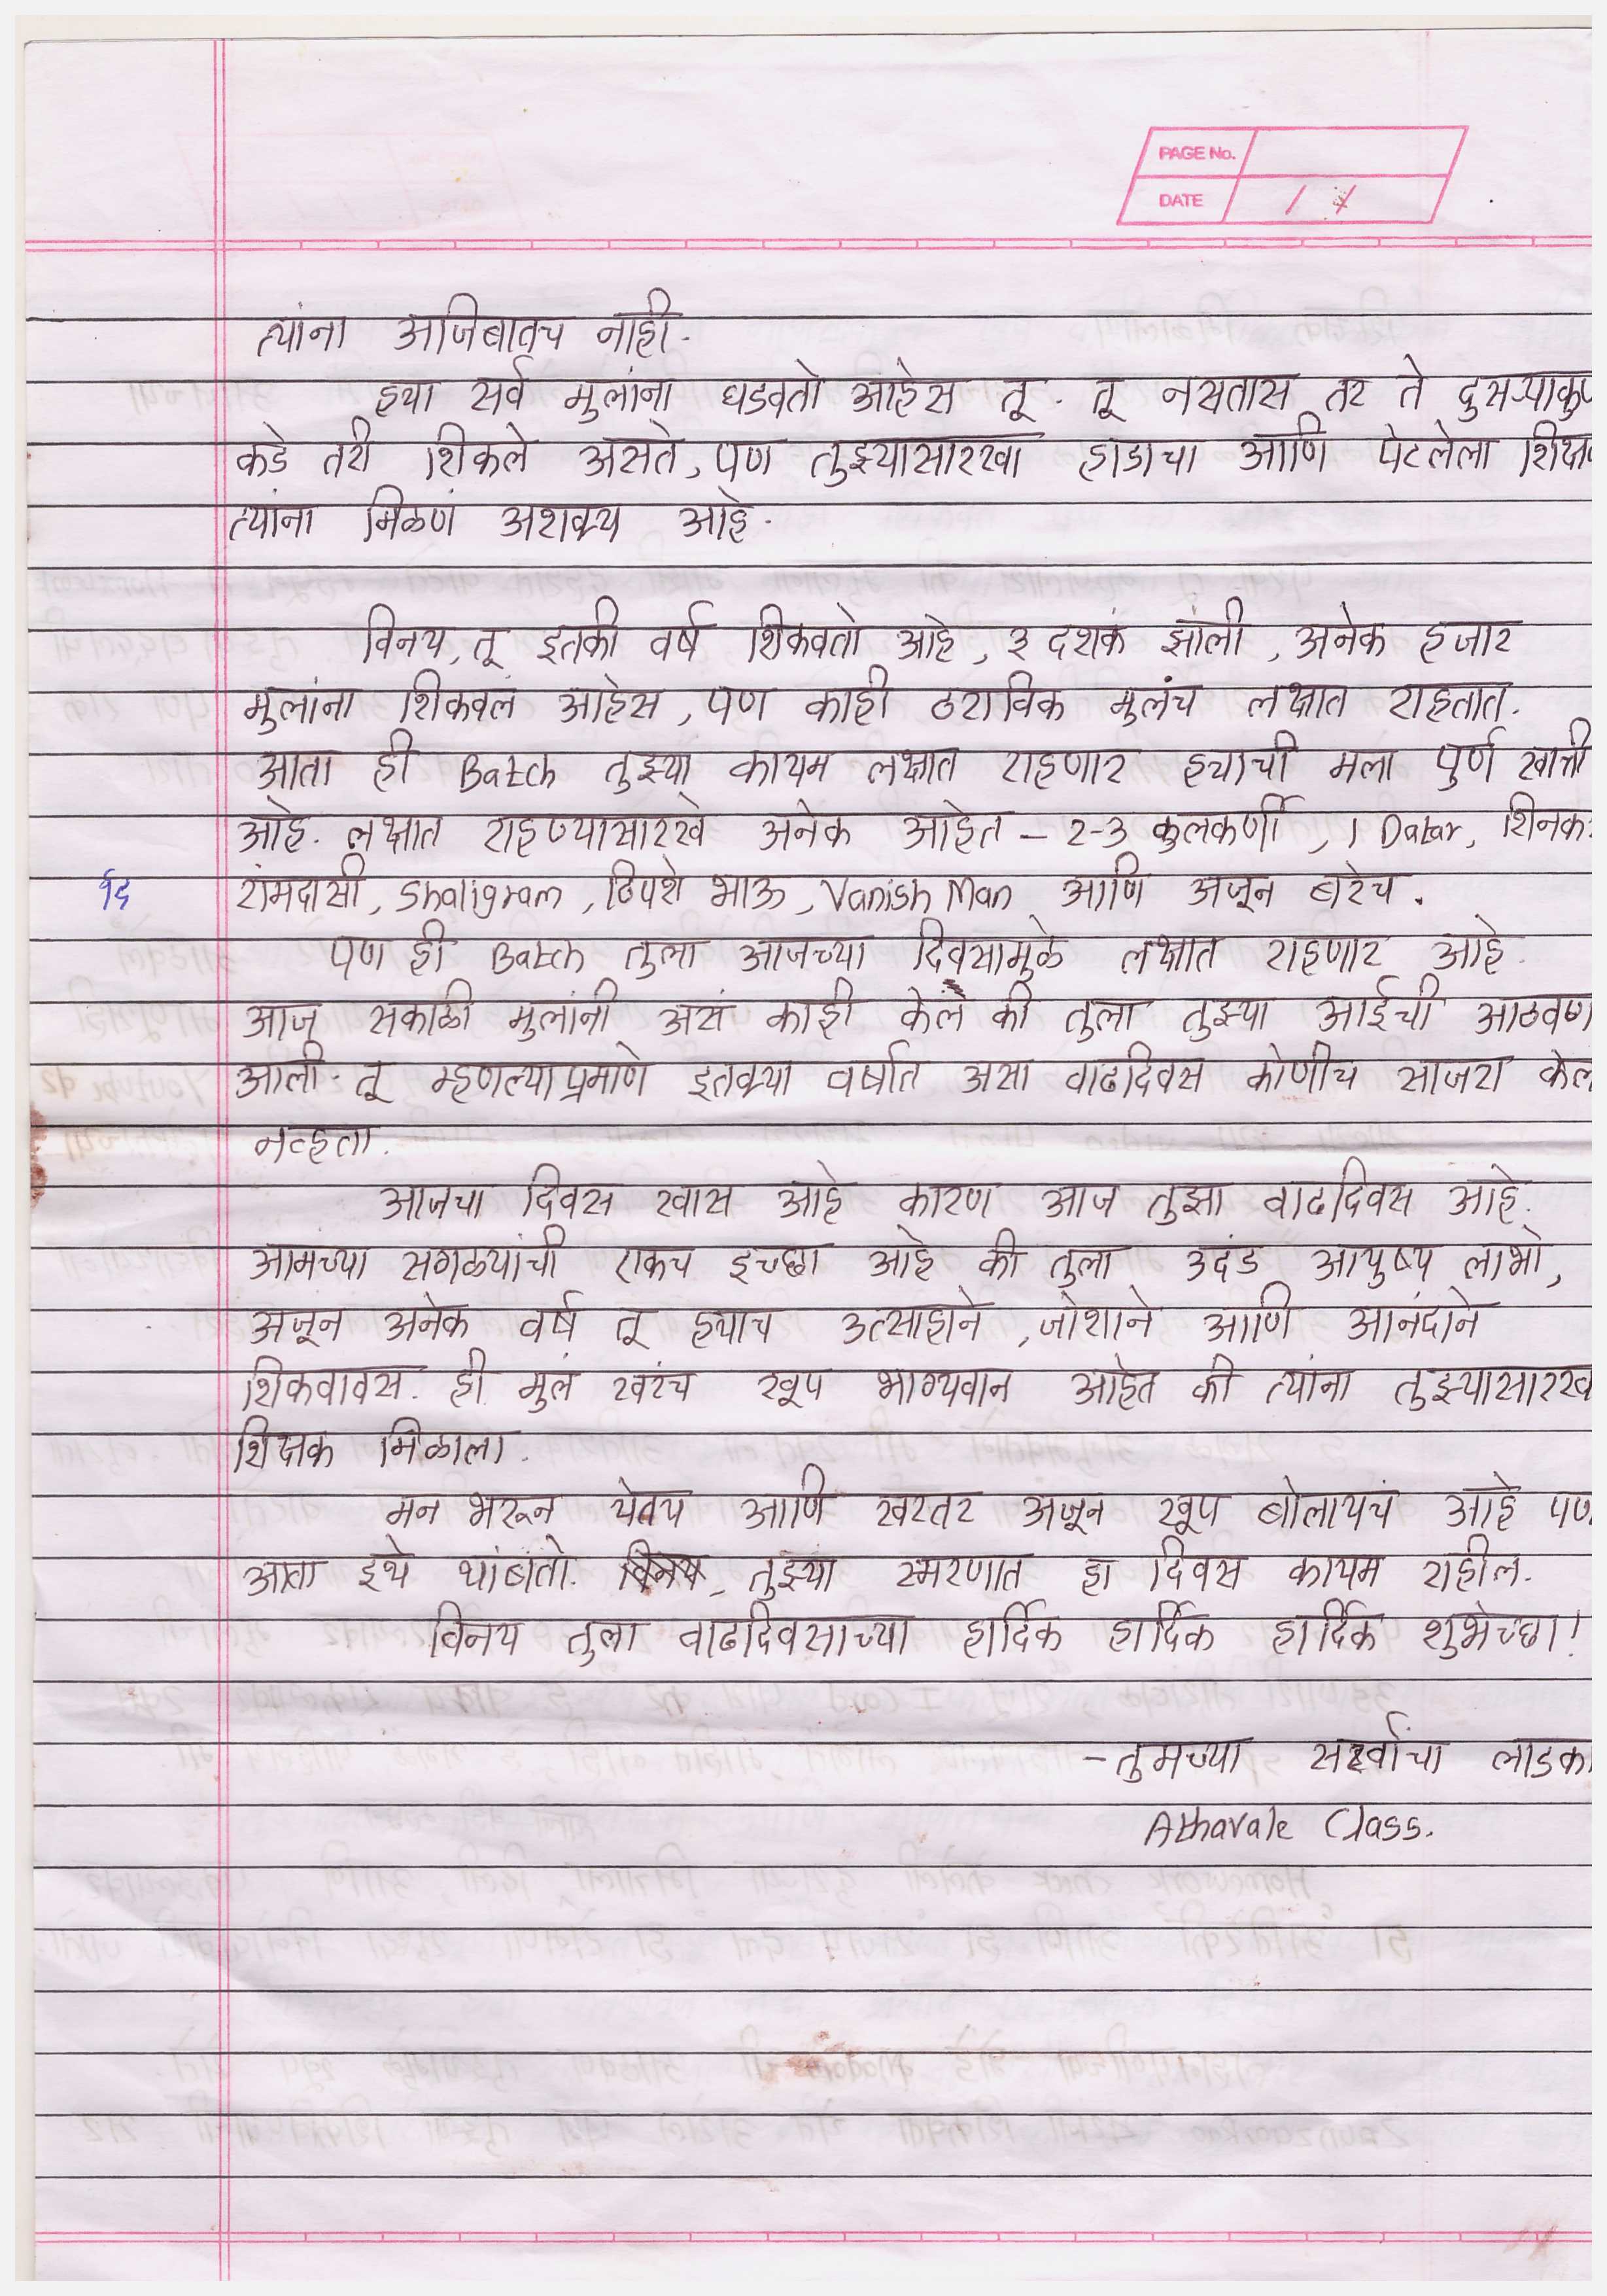 PAGE No.
DATE / /
त्यांना अजिबातच नाही.
ह्या सर्व मुलांना घडवतो आहेस तू. तू नसतास तर ते दुसऱ्याकुण
कडे तरी शिकले असते, पण तुझ्यासारखा हाडाचा आणि पेटलेला शिक्षक
त्यांना मिळणं अशक्य आहे.
विनय, तू इतकी वर्ष शिकवतो आहे, ३ दशकं झाली, अनेक हजार
मुलांना शिकवलं आहेस, पण काही ठराविक मुलंच लक्षात राहतात.
आता ही Batch तुझ्या कायम लक्षात राहणार ह्याची मला पुर्ण खात्री
आहे. लक्षात राहण्यासारखे अनेक आहेत - २-३ कुलकर्णी, 1 Datar, शिनक
रामदासी, Shaligram, ढिपशे भाऊ, Vanish Man आणि अजून बरेच.
पण ही Batch तुला आजच्या दिवसामुळे लक्षात राहणार आहे.
आज सकाळी मुलांनी असं काही केलं की तुला तुझ्या आईची आठवण
आली. तू म्हणल्याप्रमाणे इतक्या वर्षात असा वाढदिवस कोणीच साजरा केल
नव्हता.
आजचा दिवस खास आहे कारण आज तुझा वाढदिवस आहे.
आमच्या सगळ्यांची एकच इच्छा आहे की तुला उदंड आयुष्य लाभो,
अजून अनेक वर्ष तू ह्याच उत्साहाने, जोशाने आणि आनंदाने
शिकवावस. ही मुलं खरंच खूप भाग्यवान आहेत की त्यांना तुझ्यासारख
शिक्षक मिळाला.
मन भरून येतय आणि खरतर अजून खूप बोलायचं आहे पण
आता इथे थांबतो. विनय, तुझ्या स्मरणात हा दिवस कायम राहील.
विनय तुला वाढदिवसाच्या हार्दिक हार्दिक हार्दिक शुभेच्छा!
- तुमच्या सर्वांचा लाडका
Athavale Class.